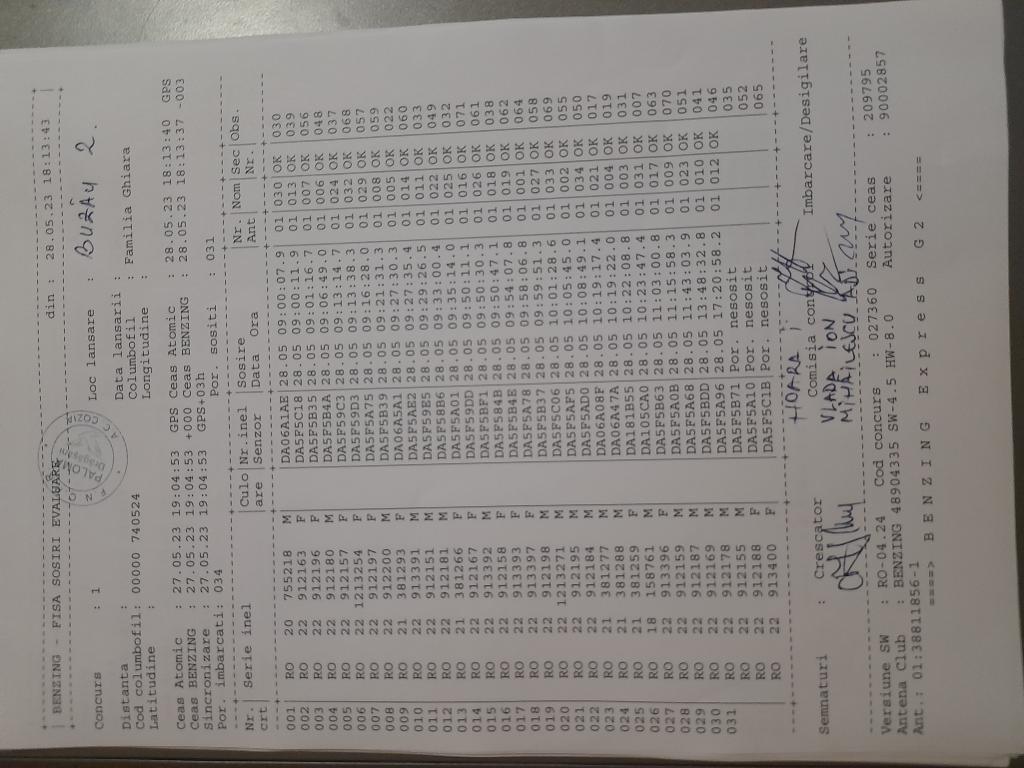 BENZING - FISA SOSIRI EVALUARE din : 28.05.23 18:13:43
BUZĂU 2.
F N C R
PALOMA
Dragasani
A C COZIA
Concurs : 1 Loc lansare :
Distanta : Data lansarii :
Cod columbofil: 00000 740524 Columbofil : Familia Ghiara
Latitudine : Longitudine :
Ceas Atomic : 27.05.23 19:04:53 GPS Ceas Atomic : 28.05.23 18:13:40 GPS
Ceas BENZING : 27.05.23 19:04:53 +000 Ceas BENZING : 28.05.23 18:13:37 -003
Sincronizare : 27.05.23 19:04:53 GPS+03h
Por. imbarcati: 034 Por. sositi : 031
Nr. Serie inel Culo Nr.inel Sosire Nr Nom Sec Obs.
crt are Senzor Data Ora Ant Nr.
001 RO 20 755218 M DA06A1AE 28.05 09:00:07.9 01 030 OK 030
002 RO 22 912163 F DA5F5C18 28.05 09:00:11.9 01 013 OK 039
003 RO 22 912196 F DA5F5B35 28.05 09:01:16.7 01 007 OK 056
004 RO 22 912180 M DA5F5B4A 28.05 09:06:49.0 01 006 OK 048
005 RO 22 912157 F DA5F59C3 28.05 09:13:14.7 01 024 OK 037
006 RO 22 1213254 F DA5F59D3 28.05 09:13:38.3 01 032 OK 068
007 RO 22 912197 F DA5F5A75 28.05 09:16:28.0 01 029 OK 057
008 RO 22 912200 M DA5F5B39 28.05 09:27:30.3 01 008 OK 059
009 RO 21 381293 F DA06A5A1 28.05 09:27:31.3 01 005 OK 022
010 RO 22 913391 M DA5F5AE2 28.05 09:27:35.4 01 014 OK 060
011 RO 22 912151 M DA5F59E5 28.05 09:29:26.5 01 011 OK 033
012 RO 22 912181 M DA5F58B6 28.05 09:33:00.4 01 022 OK 049
013 RO 21 381266 F DA5F5A01 28.05 09:35:14.0 01 025 OK 032
014 RO 22 912167 F DA5F59DD 28.05 09:50:11.1 01 016 OK 071
015 RO 22 913392 M DA5F5BF1 28.05 09:50:30.3 01 026 OK 061
016 RO 22 912158 F DA5F584B 28.05 09:50:47.1 01 018 OK 038
017 RO 22 913393 F DA5F5B4E 28.05 09:54:07.8 01 019 OK 062
018 RO 22 913397 F DA5F5A78 28.05 09:58:06.8 01 001 OK 064
019 RO 22 912198 M DA5F5B37 28.05 09:59:51.3 01 027 OK 058
020 RO 22 1213271 M DA5F5C06 28.05 10:01:28.6 01 033 OK 069
021 RO 22 912195 M DA5F5AF5 28.05 10:05:45.0 01 002 OK 055
022 RO 22 912184 M DA5F5AD0 28.05 10:08:49.1 01 034 OK 050
023 RO 21 381277 M DA06A08F 28.05 10:19:17.4 01 021 OK 017
024 RO 21 381288 M DA06A47A 28.05 10:19:22.0 01 004 OK 019
025 RO 21 381259 F DA181B55 28.05 10:22:08.8 01 003 OK 031
026 RO 18 158761 M DA105CA0 28.05 10:23:47.4 01 031 OK 007
027 RO 22 913396 F DA5F5B63 28.05 11:03:00.8 01 017 OK 063
028 RO 22 912159 M DA5F5A0B 28.05 11:15:58.3 01 009 OK 070
029 RO 22 912187 M DA5F5A68 28.05 11:43:03.9 01 023 OK 051
030 RO 22 912169 M DA5F5BDD 28.05 13:48:32.8 01 010 OK 041
031 RO 22 912178 M DA5F5A96 28.05 17:20:58.2 01 012 OK 046
RO 22 912155 M DA5F5B71 Por. nesosit 035
RO 22 912188 F DA5F5A10 Por. nesosit 052
RO 22 913400 F DA5F5C1B Por. nesosit 065
HOARA I.
Semnaturi : Crescator Comisia control Imbarcare/Desigilare
VLADA ION
MIHAILESCU
Versiune SW : RO-04.24 Cod concurs : 027360 Serie ceas : 209795
Antena Club : BENZING 48904335 SW-4.5 HW-8.0 Autorizare : 90002857
Ant.: 01:38811856-1
====> B E N Z I N G E x p r e s s G 2 <====